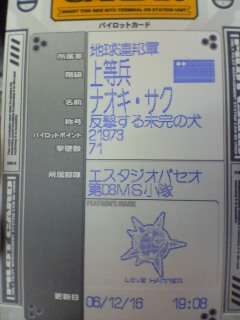 INSERT THIS SIDE INTO TERMINAL OR STATION UNIT
パイロットカード
所属軍 地球連邦軍
階級 上等兵
名前 ナオキ・サク
称号 反撃する未完の犬
パイロットポイント 21973
撃墜数 71
所属部隊 エスタジオパセオ
第08MS小隊
PLATOON'S MARK
LOVE HAMMER
更新日 06/12/16 19:08